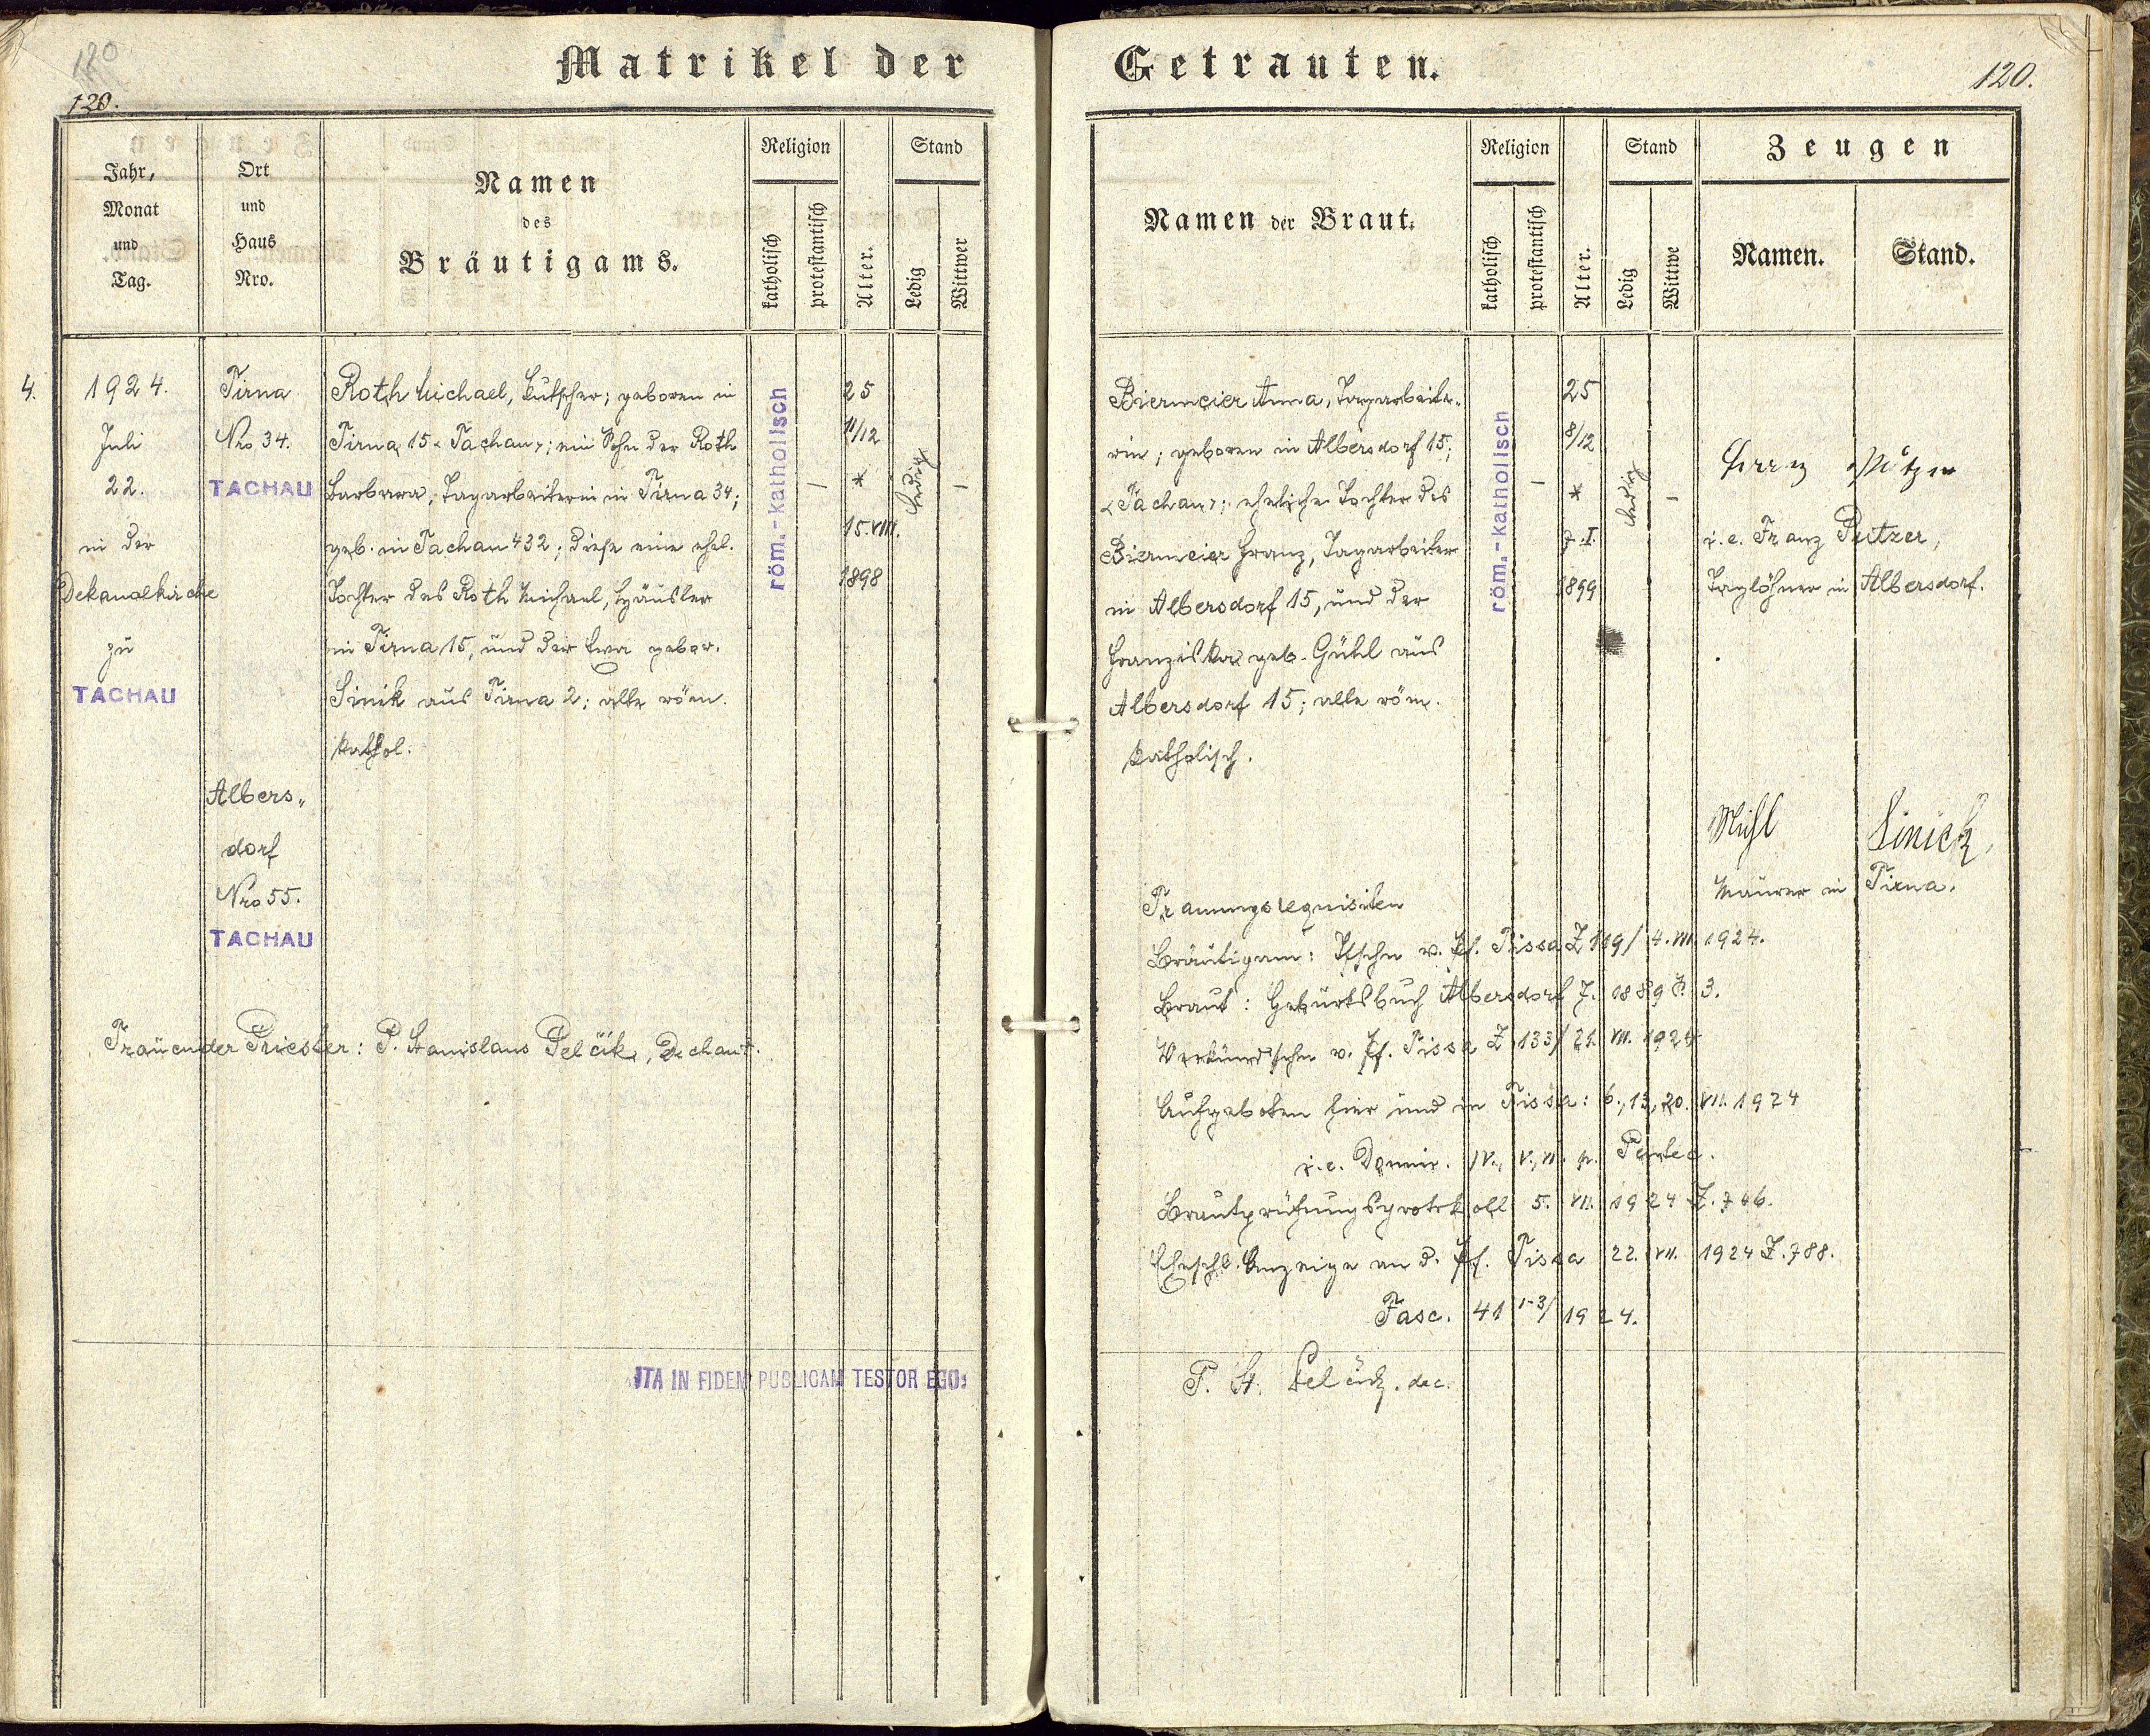 120
120.
Matrikel der
Jahr,
Monat
und
Tag.
Ort
und
Haus
Nro.
Namen
des
Bräutigams.
Religion
katholisch
protestantisch
Alter.
Stand
Ledig
Wittwer
4.
1924.
Juli
22.
in der
Dekanalkirche
zu
TACHAU
Tirna
Nro 34.
TACHAU
Albers„
dorf
Nro 55.
TACHAU
Roth Michael, Kutscher; geboren in
Tirna 15 „Tachau"; ein Sohn der Roth
Barbara, Tagarbeiterin in Tirna 34;
geb. in Tachau 432; diese eine ehel.
Tochter des Roth Michael, Häusler
in Tirna 15, und der Eva gebor.
Sinik aus Tirna 2; alle röm.
kathol.
röm.-katholisch
–
25
11/12
*
15.VIII.
1898
ledig
–
Trauender Priester: P. Stanislaus Pelčik, Dechant.
ITA IN FIDEM PUBLICAM TESTOR EGO:
Getrauten.
120.
Namen der Braut.
Religion
katholisch
protestantisch
Alter.
Stand
Ledig
Wittwe
Zeugen
Namen.
Stand.
Biermeier Anna, Tagarbeite„
rin; geboren in Albersdorf 15;
„Tachau"; eheliche Tochter des
Biermeier Franz, Tagarbeiter
in Albersdorf 15, und der
Franziska geb. Gühl aus
Albersdorf 15; alle röm.
katholisch.
röm.-katholisch
–
25
8/12
*
7.I.
1899
ledig
–
Franz
i.e. Franz Putzer,
Taglöhner in Albersdorf.
Michl Sinick,
Maurer in Tirna.
Trauungsrequisiten
Bräutigam: Tfschn v. Pf. Tissa Z 119/ 4. VII. 1924.
Braut: Geburtsbuch Albersdorf 7. 1889 F. 3.
Verkündschn v. Pf. Tissa Z 133/ 21. VII. 1924
Aufgeboten hier und in Tissa: 6., 13., 20. VII. 1924
i.e. Domin. IV., V., VI. p. Pentec.
Brautprüfungsprotokoll 5. VII. 1924 Z. 746.
Eheschl. Anzeige an d. Pf. Tissa 22. VII. 1924 Z. 788.
Fasc. 41 1-3/ 1924.
P. St. Pelčik. dec.